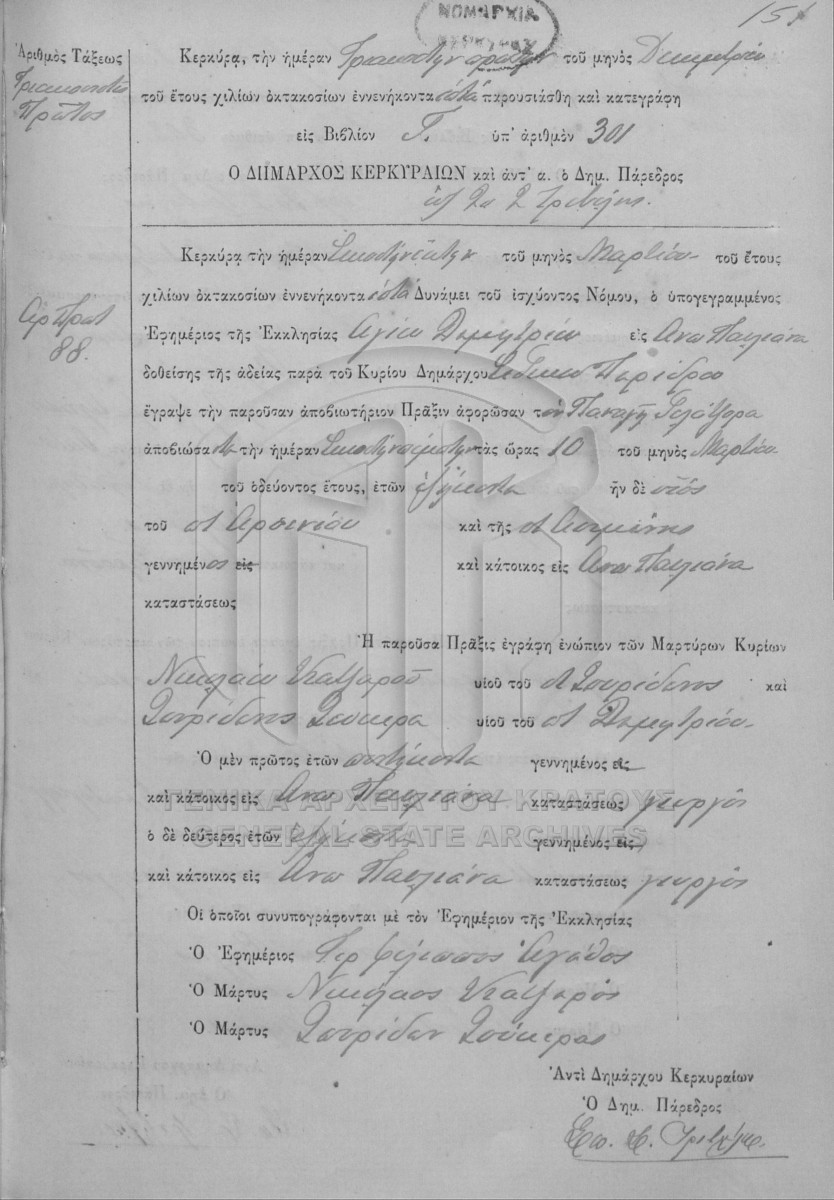 ΝΟΜΑΡΧΙΑ
ΚΕΡΚΥΡΑΣ
151
Ἀριθμὸς Τάξεως
Τριακοστὸς
Πρῶτος
Κερκύρᾳ, τὴν ἡμέραν Τριακοστὴν πρώτην τοῦ μηνὸς Δεκεμβρίου
τοῦ ἔτους χιλίων ὀκτακοσίων ἐννενήκοντα ἑπτὰ παρουσιάσθη καὶ κατεγράφη
εἰς Βιβλίον Γ. ὑπ' ἀριθμὸν 301
Ο ΔΗΜΑΡΧΟΣ ΚΕΡΚΥΡΑΙΩΝ καὶ ἀντ' α. ὁ Δημ. Πάρεδρος
Κερκύρᾳ τὴν ἡμέραν τοῦ μηνὸς Μαρτίου τοῦ ἔτους
χιλίων ὀκτακοσίων ἐννενήκοντα ἑπτὰ Δυνάμει τοῦ ἰσχύοντος Νόμου, ὁ ὑπογεγραμμένος
Ἀρ Πρωτ
88.
Ἐφημέριος τῆς Ἐκκλησίας Ἁγίου Δημητρίου εἰς Ἄνω Παυλιάνα
δοθείσης τῆς ἀδείας παρὰ τοῦ Κυρίου Δημάρχου Παρέδρου
ἔγραψε τὴν παροῦσαν ἀποβιωτήριον Πρᾶξιν ἀφορῶσαν τὸν Παναγῆ
ἀποβιώσαντα τὴν ἡμέραν τὰς ὥρας 10 τοῦ μηνὸς Μαρτίου
τοῦ ὁδεύοντος ἔτους, ἐτῶν ἑξήκοντα ἦν δὲ υἱὸς
τοῦ π Ἀρσενίου καὶ τῆς π
γεννημένος εἰς καὶ κάτοικος εἰς Ἄνω Παυλιάνα
καταστάσεως
Ἡ παροῦσα Πρᾶξις ἐγράφη ἐνώπιον τῶν Μαρτύρων Κυρίων
Νικολάου Κατζαροῦ υἱοῦ τοῦ π Σπυρίδωνος καὶ
Σπυρίδωνος Σούκερα υἱοῦ τοῦ π Δημητρίου
Ὁ μὲν πρῶτος ἐτῶν πεντήκοντα γεννημένος εἰς
καὶ κάτοικος εἰς Ἄνω Παυλιάνα καταστάσεως γεωργὸς
ΓΕΝΙΚΑ ΑΡΧΕΙΑ ΤΟΥ ΚΡΑΤΟΥΣ
ὁ δὲ δεύτερος ἐτῶν ἑξήκοντα γεννημένος εἰς
GENERAL STATE ARCHIVES
καὶ κάτοικος εἰς Ἄνω Παυλιάνα καταστάσεως γεωργὸς
Οἱ ὁποῖοι συνυπογράφονται μὲ τὸν Ἐφημέριον τῆς Ἐκκλησίας
Ὁ Ἐφημέριος Ἱερ Φίλιππος Ἀγάθος
Ὁ Μάρτυς Νικόλαος Κατζαρὸς
Ὁ Μάρτυς Σπυρίδων Σούκερας
Ἀντὶ Δημάρχου Κερκυραίων
Ὁ Δημ. Πάρεδρος